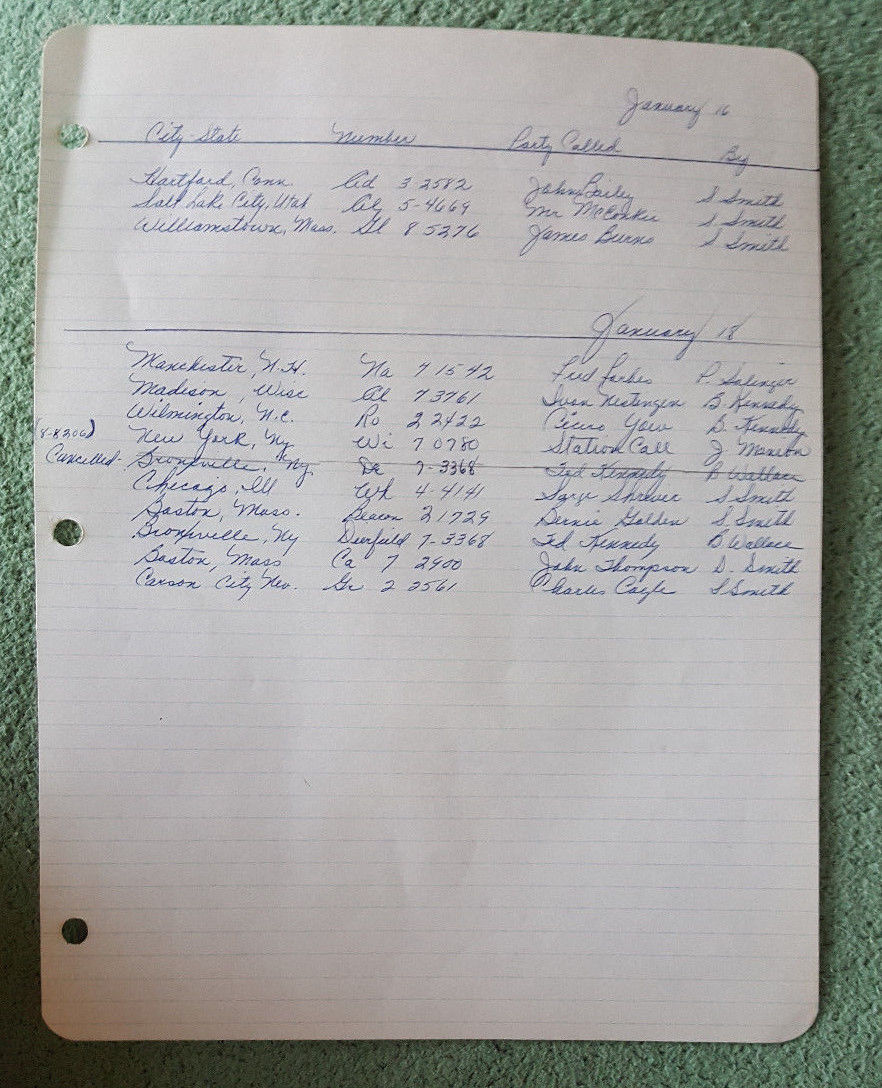 January 16
City-State Number Party Called By
Hartford, Conn. 3-2582 John Bailey S Smith
Salt Lake City, Utah 5-4669 Mr McConkie S Smith
Williamstown, Mass. Gl 8 5276 James Burns S Smith
January 18
Manchester, N.H. Na 7 1542 Fred Forbes P. Salinger
Madison, Wisc Al 7 3761 Ivan Nestingen B. Kennedy
Wilmington, N.C. Ro 2 2422 Cicero Yow B. Kennedy
(8-8206) New York, Ny Wi 7 0780 Station Call J Manion
Cancelled Bronxville, Ny De 7-3368 Ted Kennedy B Wallace
Chicago, Ill Wh 4-4141 Sarge Shriver S Smith
Boston, Mass. Beacon 2 1729 Bernie Golden S Smith
Bronxville, Ny Deerfield 7-3368 Ted Kennedy B Wallace
Boston, Mass Ca 7 2900 John Thompson D. Smith
Carson City Nev. Gr 2 2561 Charles Cagle S Smith